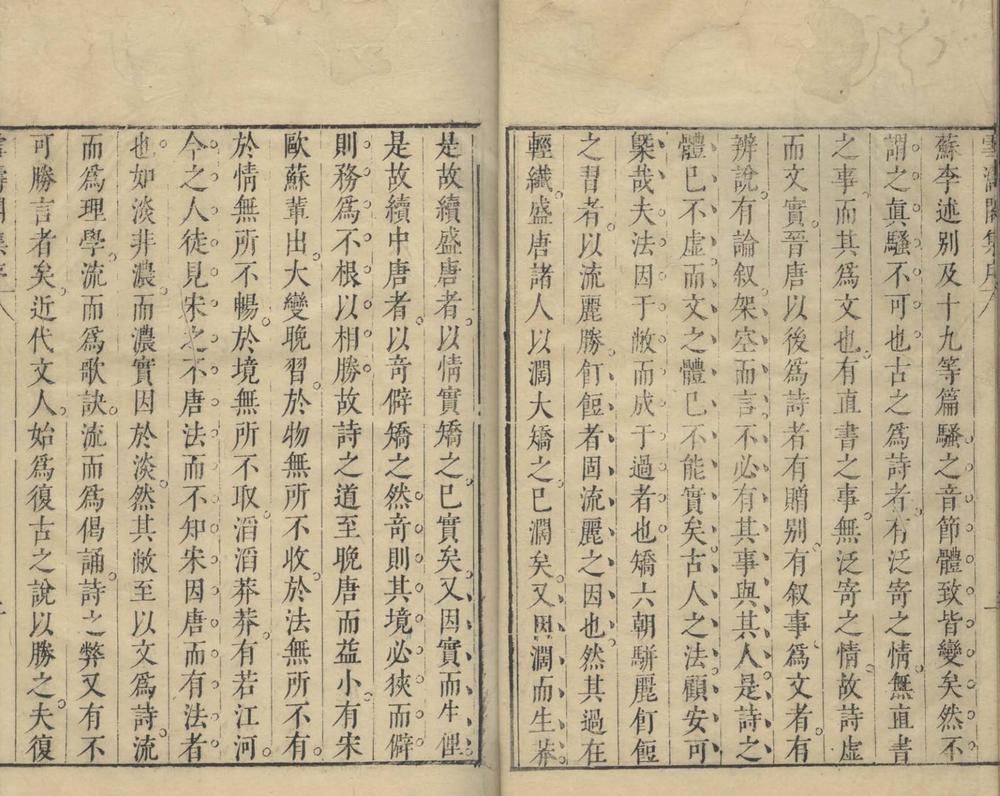 雪濤閣集序
蘇李述别及十九等篇騷之音節體致皆變矣然不
謂之眞騷不可也古之爲詩者有泛寄之情無直書
之事而其爲文也有直書之事無泛寄之情故詩虛
而文實晉唐以後爲詩者有贈别有叙事爲文者有
辨說有論叙架空而言不必有其事與其人是詩之
體已不虛而文之體已不能實矣古人之法顧安可
槩哉夫法因于敝而成于過者也矯六朝駢麗飣餖
之習者以流麗勝飣餖者固流麗之因也然其過在
輕纖盛唐諸人以濶大矯之已濶矣又因濶而生莽
是故續盛唐者以情實矯之已實矣又因實而生俚
是故續中唐者以奇僻矯之然奇則其境必狹而僻
則務爲不根以相勝故詩之道至晚唐而益小有宋
歐蘇輩出大變晚習於物無所不收於法無所不有
於情無所不暢於境無所不取滔滔莽莽有若江河
今之人徒見宋之不唐法而不知宋因唐而有法者
也如淡非濃而濃實因於淡然其敝至以文爲詩流
而爲理學流而爲歌訣流而爲偈誦詩之弊又有不
可勝言者矣近代文人始爲復古之說以勝之夫復
雪濤閣集序